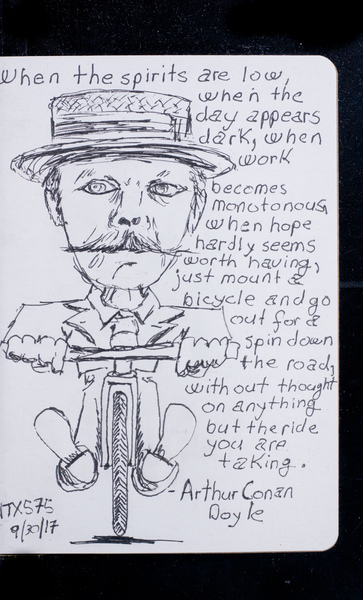 When the spirits are low,
when the
day appears
dark, when
work
becomes
monotonous,
when hope
hardly seems
worth having,
just mount a
bicycle and go
out for a
spin down
the road,
with out thought
on anything
but the ride
you are
taking.
- Arthur Conan
Doyle
NTX575
9/30/17